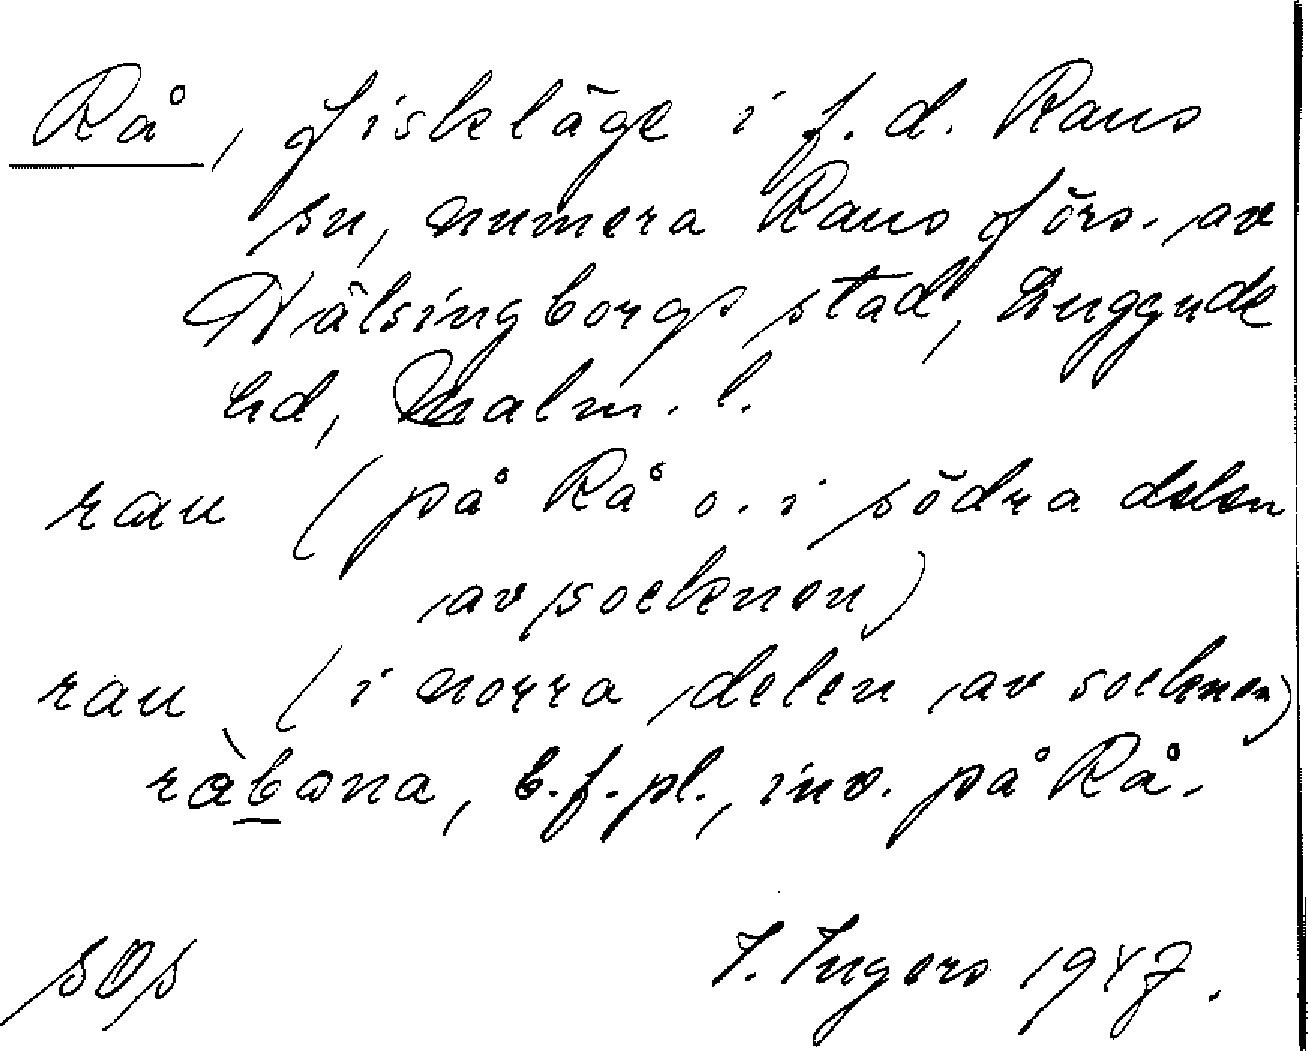 Rå, fiskläge i f.d. Raus
sn, numera Raus förs. av
Hälsingborgs stad, Luggude
hd, Malm. l.
rau (på Rå o. i södra delen
av socknen)
rau (i norra delen av socknen)
ràbona, b.f.pl., inv. på Rå.
I. Ingers 1947.